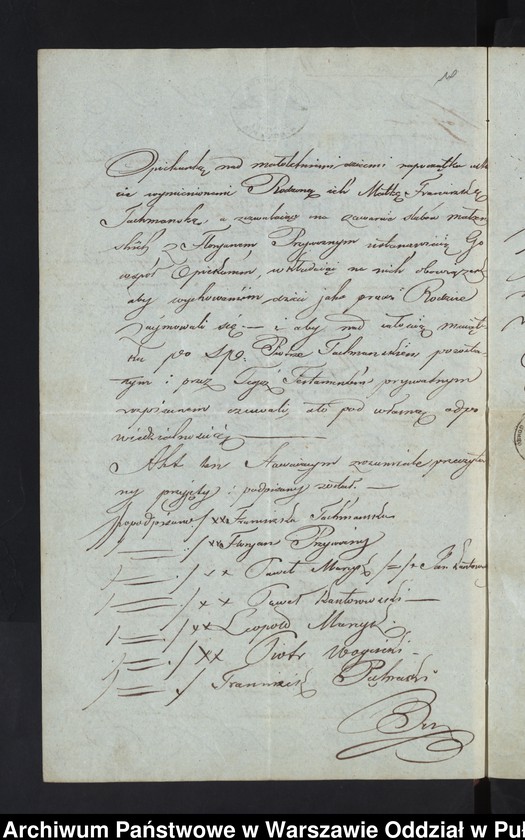 18
Opiekunką nad małoletniemi dziećmi na początku
cie wymienionemi Rodzoną ich Matkę Franciszkę
Tuchmanską, a zezwalając na zawarcie ślubów małżeń
skich z Floryanem Przywarnym ustanawiają Go
współ Opiekunem, wkładając na nich obowiązek
aby wychowaniem dzieci jako prawi Rodzice
zajmowali się — i aby nad całością mająt
ku po śp: Piotrze Tuchmanskim pozosta
łym i przez Tegoż Testamentem prywatnym
zapisanem czuwali, a to pod własną odpo
wiedzialnością —
Akt ten Stawającym zrozumiale przeczyta
ny przyjęty i podpisany został. —
/podpisano/ xxx Franciszka Tuchmanska
/ xx Floryan Przywarny
/ x x Paweł / = / x Jan
/ x x Paweł Kantorowski —
/ xx Leopold
/ xx Piotr
/ Franciszek
Archiwum Państwowe w Warszawie Oddział w Puł